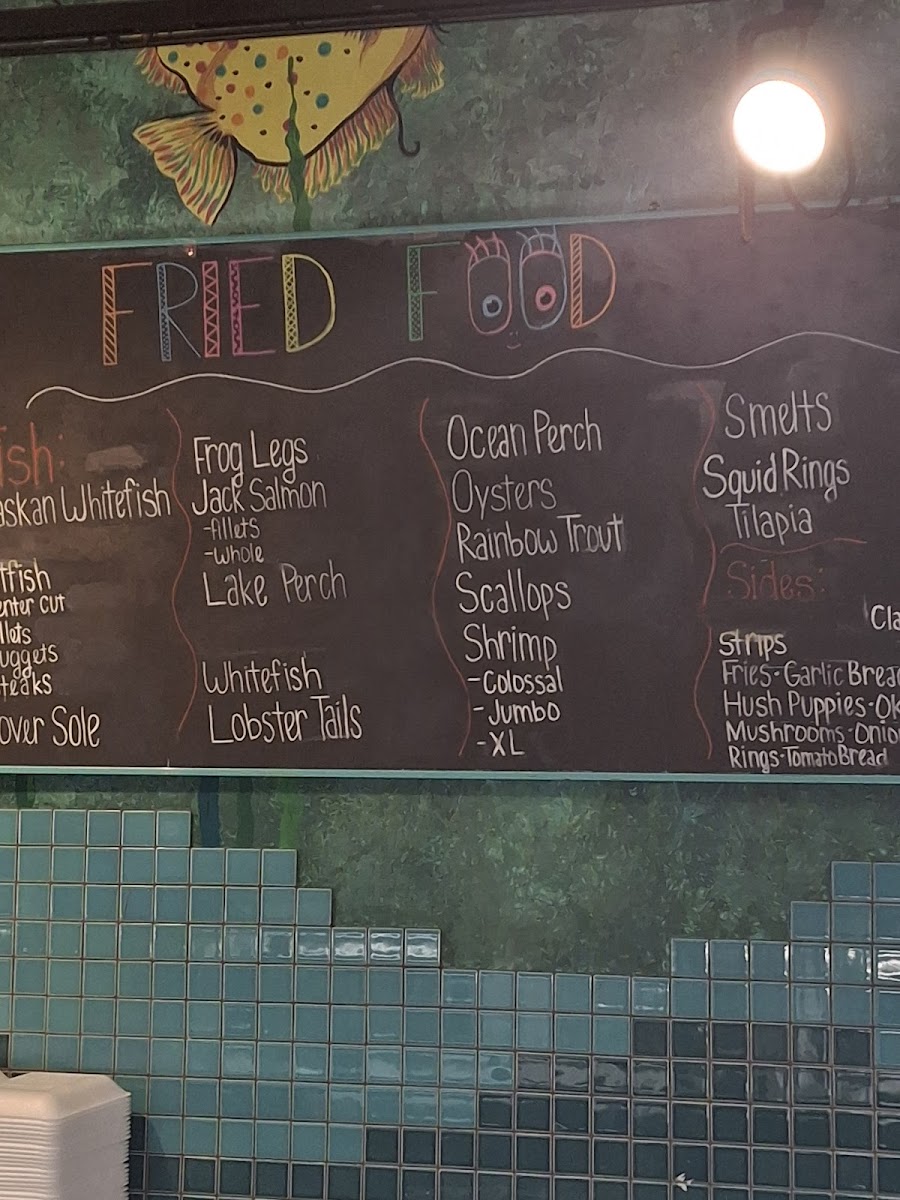 FRIED FOOD
ish:
askan Whitefish
tfish
enter cut
llets
uggets
teaks
over Sole
Frog Legs
Jack Salmon
-fillets
-whole
Lake Perch
Whitefish
Lobster Tails
Ocean Perch
Oysters
Rainbow Trout
Scallops
Shrimp
-Colossal
-Jumbo
-XL
Smelts
Squid Rings
Tilapia
Sides:
Cla
Strips
Fries-Garlic Brea
Hush Puppies-Ok
Mushrooms-Onio
Rings-Tomato Bread